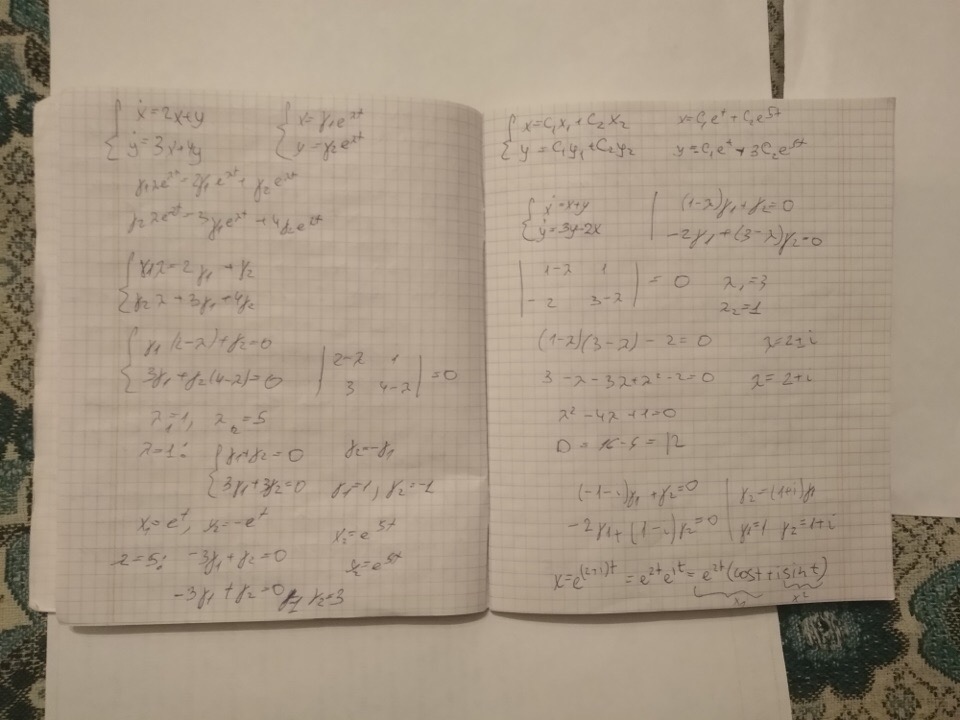 ẋ = 2x+y    x = γ₁e^λt
ẏ = 3x+4y    y = γ₂e^λt
γ₁λe^λt = 2γ₁e^λt + γ₂e^λt
γ₂λe^λt = 3γ₁e^λt + 4γ₂e^λt
γ₁λ = 2γ₁ + γ₂
γ₂λ + 3γ₁ + 4γ₂
γ₁(2-λ) + γ₂ = 0
3γ₁ + γ₂(4-λ) = 0
| 2-λ 1 |
| 3 4-λ | = 0
λ₁ = 1, λ₂ = 5
λ = 1: γ₁ + γ₂ = 0    γ₂ = -γ₁
3γ₁ + 3γ₂ = 0    γ₁ = 1, γ₂ = -1
x₁ = e^t, y₁ = -e^t    x₂ = e^5t
λ = 5: -3γ₁ + γ₂ = 0
-3γ₁ + γ₂ = 0    γ₂ = 3
x = C₁x₁ + C₂x₂    x = C₁e^t + C₂e^5t
y = C₁y₁ + C₂y₂    y = C₁e^t + 3C₂e^5t
ẋ = x+y    (1-λ)γ₁ + γ₂ = 0
ẏ = 3y-2x    -2γ₁ + (3-λ)γ₂ = 0
| 1-λ 1 | = 0    λ₁ = 3
| -2 3-λ |    λ₂ = 1
(1-λ)(3-λ) - 2 = 0    λ = 2±i
3 - λ - 3λ + λ² - 2 = 0    λ = 2+i
λ² - 4λ + 1 = 0
D = 16 - 4 = 12
(-1-i)γ₁ + γ₂ = 0    γ₂ = (1+i)γ₁
-2γ₁ + (1-i)γ₂ = 0    γ₁ = 1 γ₂ = 1+i
x = e^(2+i)t = e^2t e^it = e^2t (cost + i sin t)
x₁    x₂